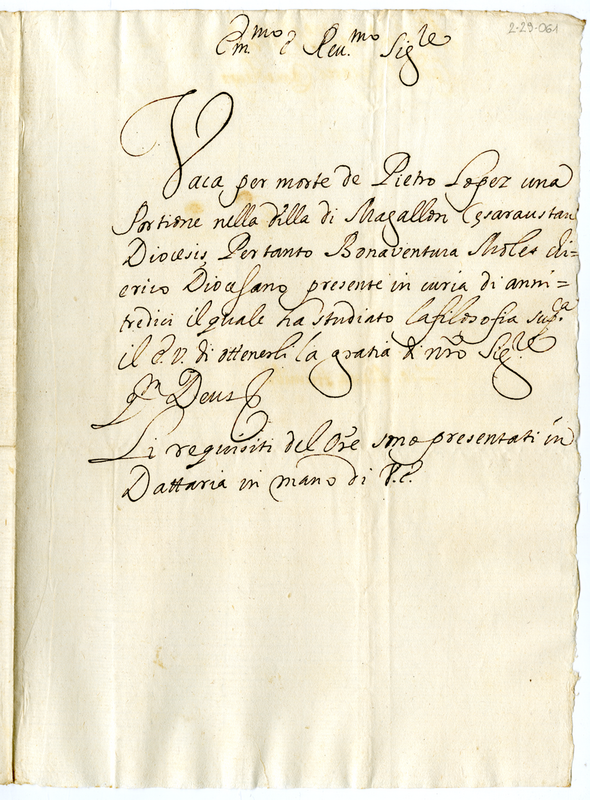 2-29-061
Em.mo e Reu.mo Sig.re
Vaca per morte de Pietro Lopez una
Portione nella Villa di Magallon Cesaraustan
Diocesis, Pertanto Bonaventura Moles chi=
erico Diocesano presente in curia di anni=
tredici il quale ha studiato la filosofia sup.ca
il E.V. di ottenerli la gratia di nr̃o Sig.re
Qm Deus
Li requisiti del Orẽ sono presentati in
Dattaria in mano di V.E.